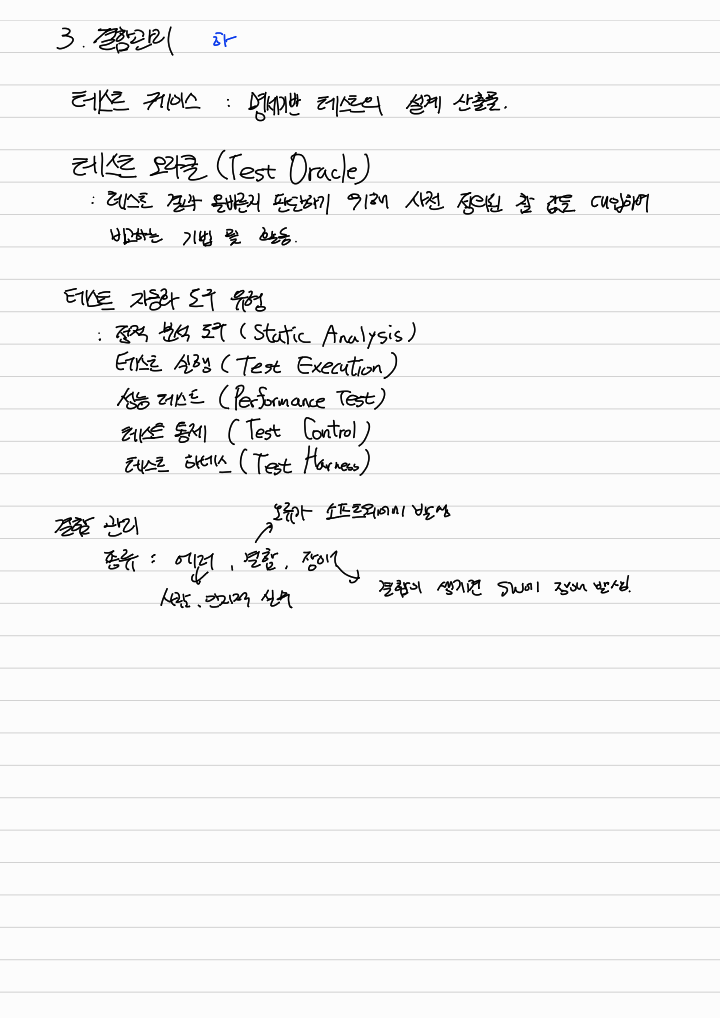 3. 결함관리 하
테스트 케이스 : 명세기반 테스트의 설계 산출물.
테스트 오라클 (Test Oracle)
: 테스트 결과 올바른지 판단하기 위해 사전 정의된 참 값도 대입하여
비교하는 기법 및 활동.
테스트 자동화 도구 유형
: 정적 분석 도구 (Static Analysis)
테스트 실행 (Test Execution)
성능 테스트 (Performance Test)
테스트 통제 (Test Control)
테스트 하네스 (Test Harness)
오류가 소프트웨어에 발생
결함 관리
종류 : 에러, 결함, 장애
결함이 생기면 SW에 장애 발생.
사람, 실수